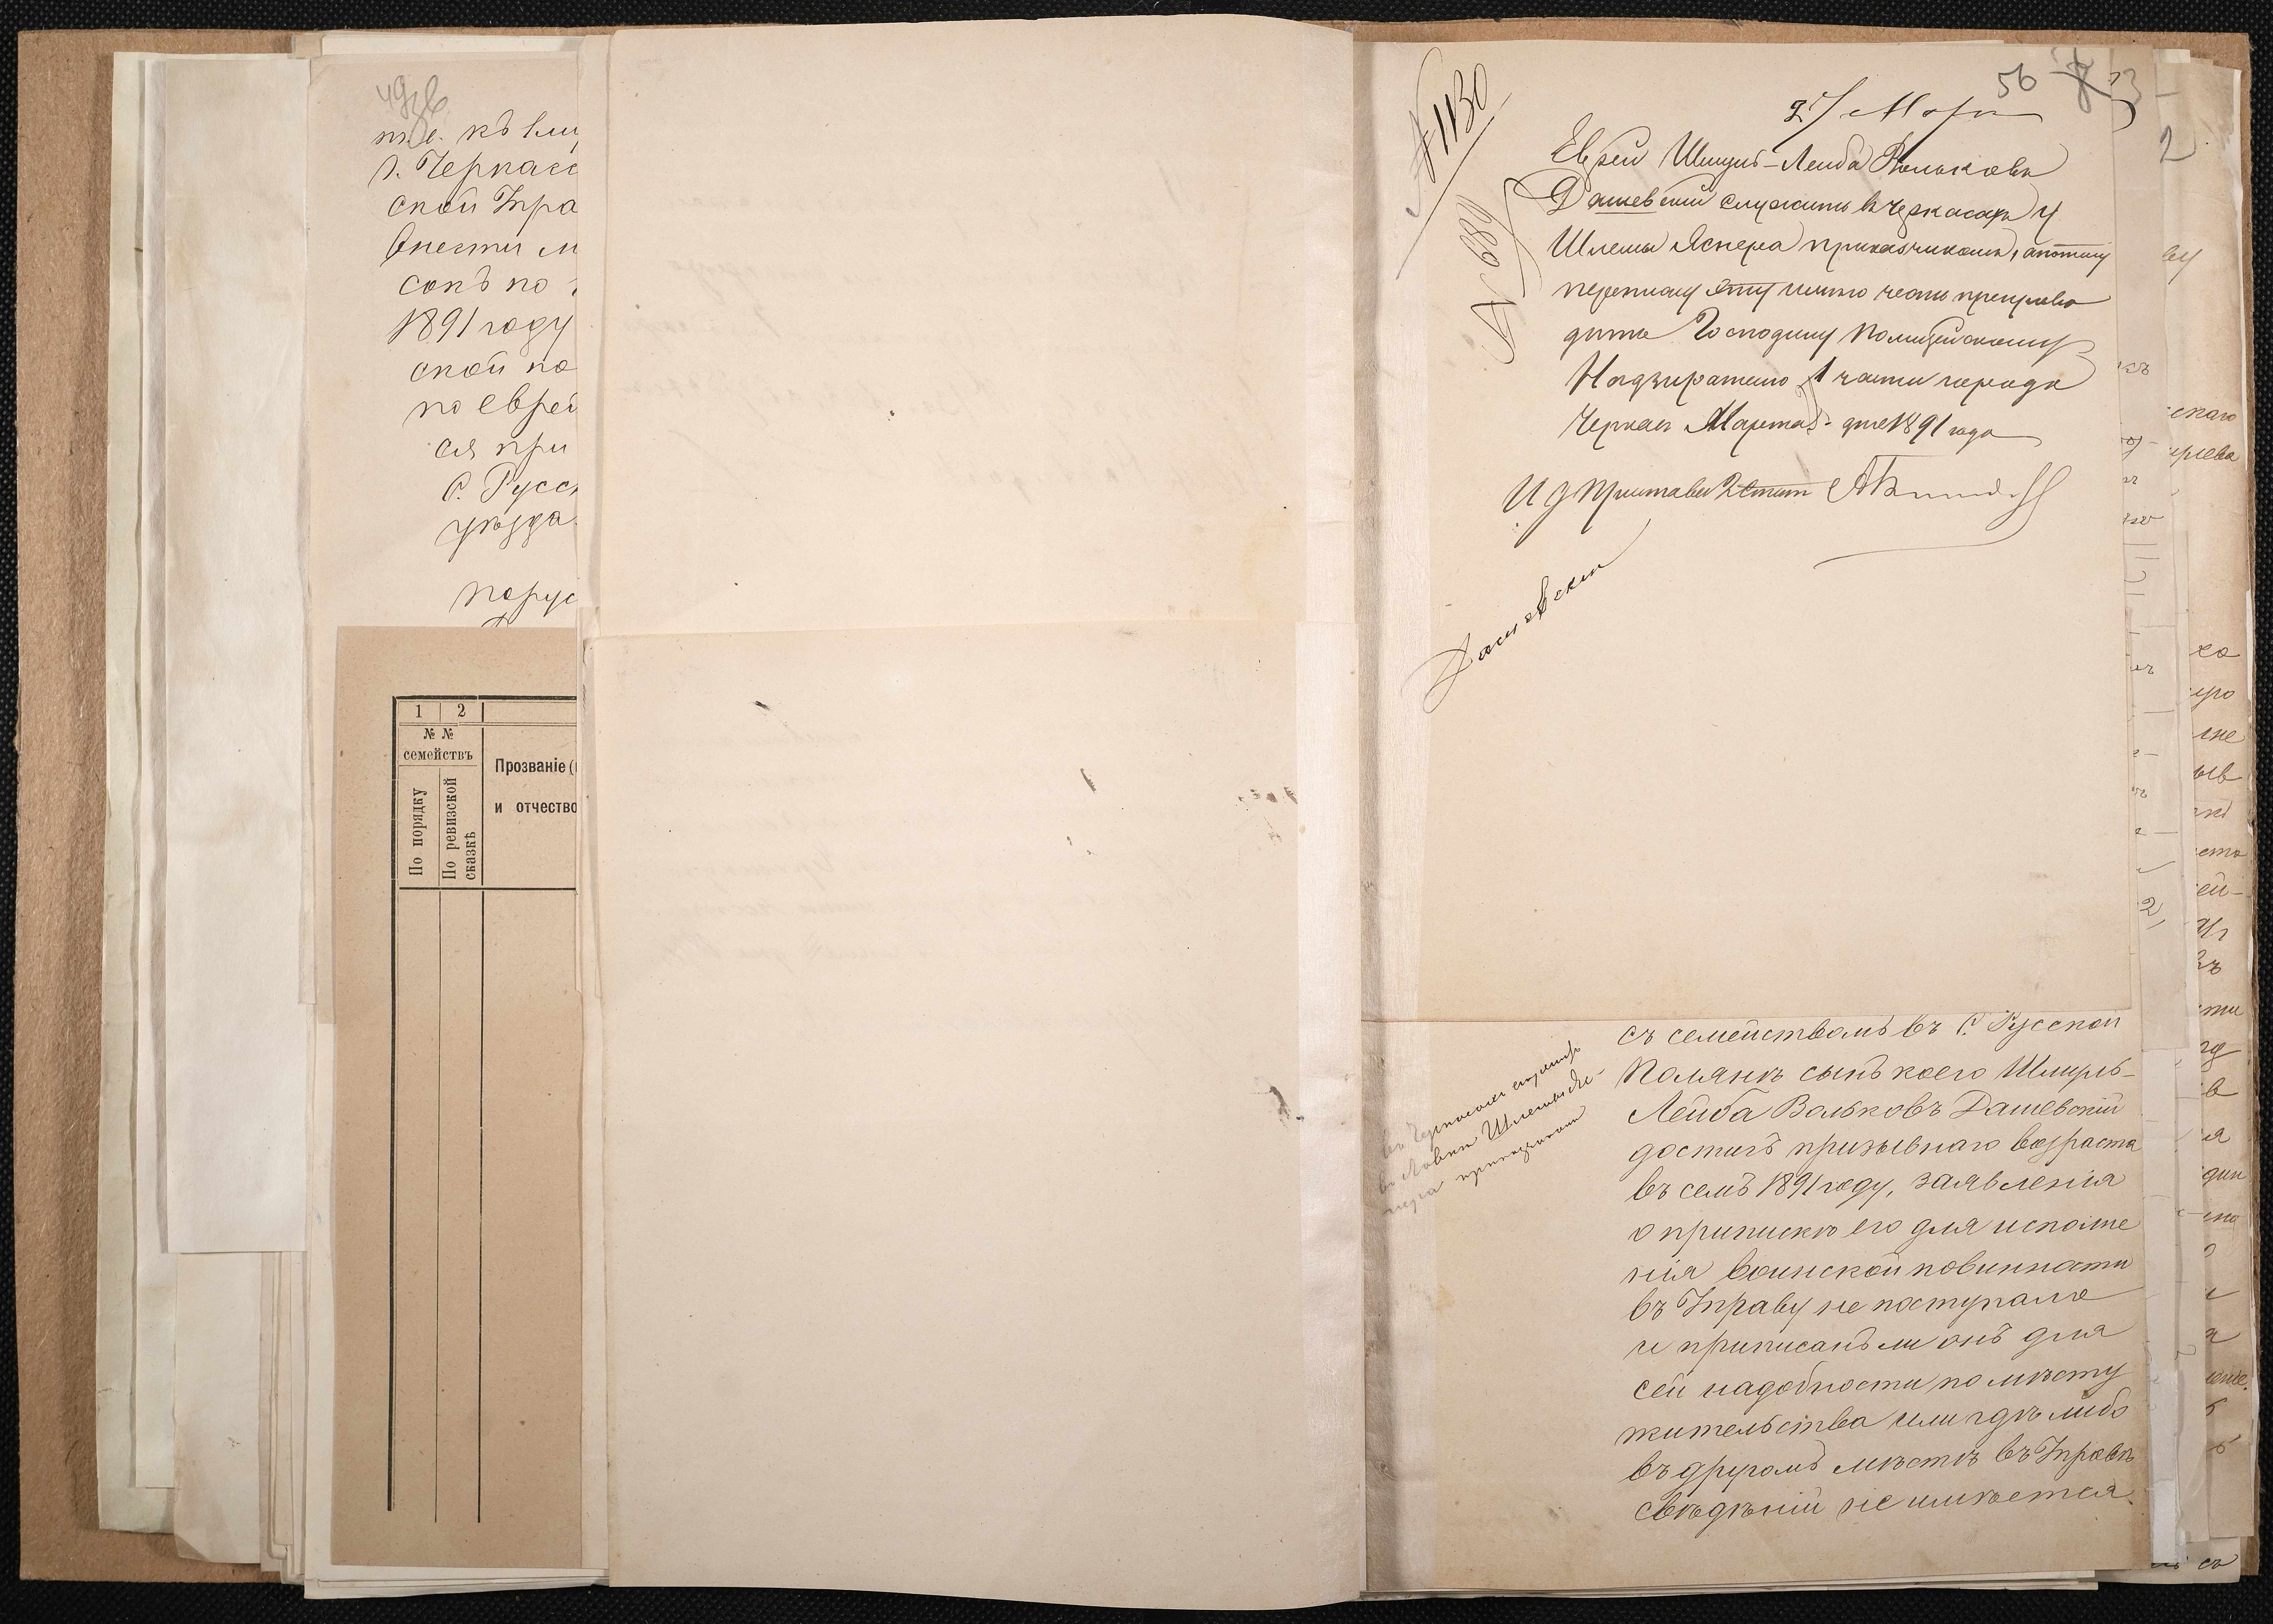 т.е. къ
г. Черкасс
ской Упра
внести
сокъ по
1891 году
ской по
по еврей
ся при
С. Русс
уѣзда.
порус
1 2
№ №
семействъ
По порядку
По ревизской
сказкѣ
Прозваніе (
и отчество
56
2
№ 1130
№ 689
27 Мар
Еврей Шмуль-Лейба Вольковъ
Дашевскій служитъ въ Черкасахъ у
Шлемы Яснера прикащикомъ, а потому
переписку эту имѣю честь препрово
дить Господину Полицейскому
Надзирателю 1 части города
Черкасъ Марта дня 1891 года
И д Пристава 2
Дашевскій
съ семействомъ въ С. Русской
Полянѣ сынъ коего Шмуль-
Лейба Вольковъ Дашевскій
достигъ призывнаго возраста
въ семъ 1891 году, заявленія
о припискѣ его для исполне
нія воинской повинности
въ Управу не поступало
и приписанъ ли онъ для
сей надобности по мѣсту
жительства или гдѣ либо
въ другомъ мѣстѣ въ Управѣ
свѣдѣній не имѣется.
въ Черкасахъ служитъ
въ лавки Шлемы Яс-
нера прикащикомъ